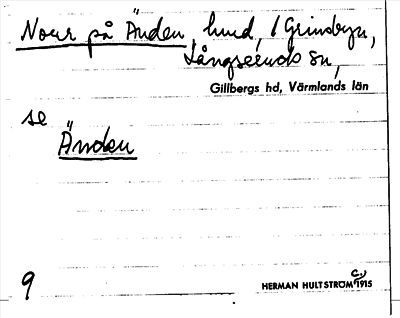 Norr på Änden, hmd, i Grinsbyn,
Långseruds sn,
Gillbergs hd, Värmlands län
se
Änden
9
HERMAN HULTSTRÖM C:a 1915